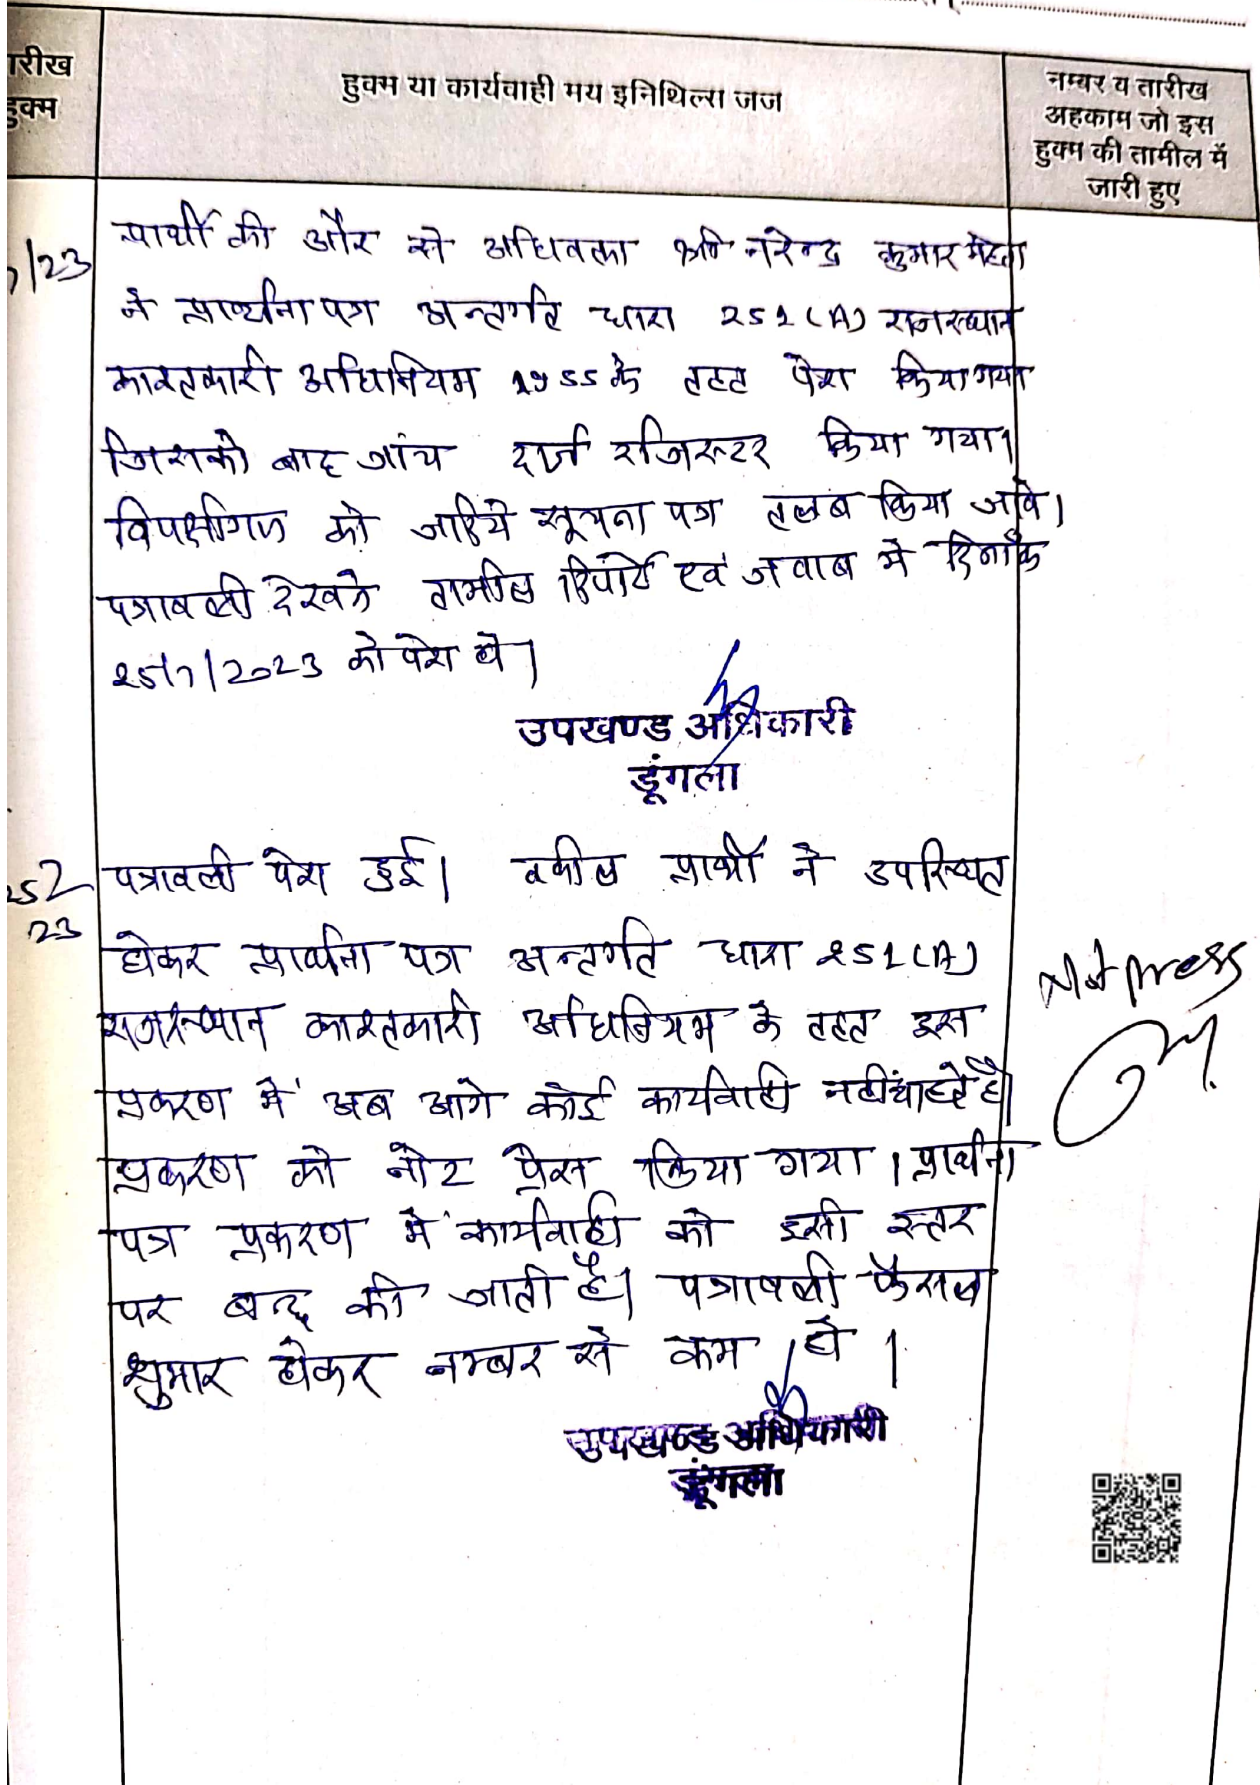 तारीख
हुक्म
हुक्म या कार्यवाही मय इनिथिल्स जज
नम्बर व तारीख
अहकाम जो इस
हुक्म की तामील में
जारी हुए
/23
प्रार्थी की और से अधिवक्ता श्री नरेन्द्र कुमार मेहता
ने प्रार्थना पत्र अन्तर्गत धारा 251(A) राजस्थान
काश्तकारी अधिनियम 1955 के तहत पेश किया गया
जिसको बाद जांच दर्ज रजिस्टर किया गया।
विपक्षीगण को जरिये सूचना पत्र तलब किया जावे।
पत्रावली देखने तामील रिपोर्ट एवं जवाब में दिनांक
25/7/2023 को पेश हो।
उपखण्ड अधिकारी
डूंगला
25
23
पत्रावली पेश हुई। वकील प्रार्थी ने उपस्थित
होकर प्रार्थना पत्र अन्तर्गत धारा 251(A)
राजस्थान काश्तकारी अधिनियम के तहत इस
प्रकरण में अब आगे कोई कार्यवाही नहीं चाहते है।
प्रकरण को नोट प्रेस किया गया। प्रार्थना
पत्र प्रकरण में कार्यवाही को इसी स्तर
पर बन्द की जाती है। पत्रावली फैसल
शुमार होकर नम्बर से कम हो।
Not press
उपखण्ड अधिकारी
डूंगला